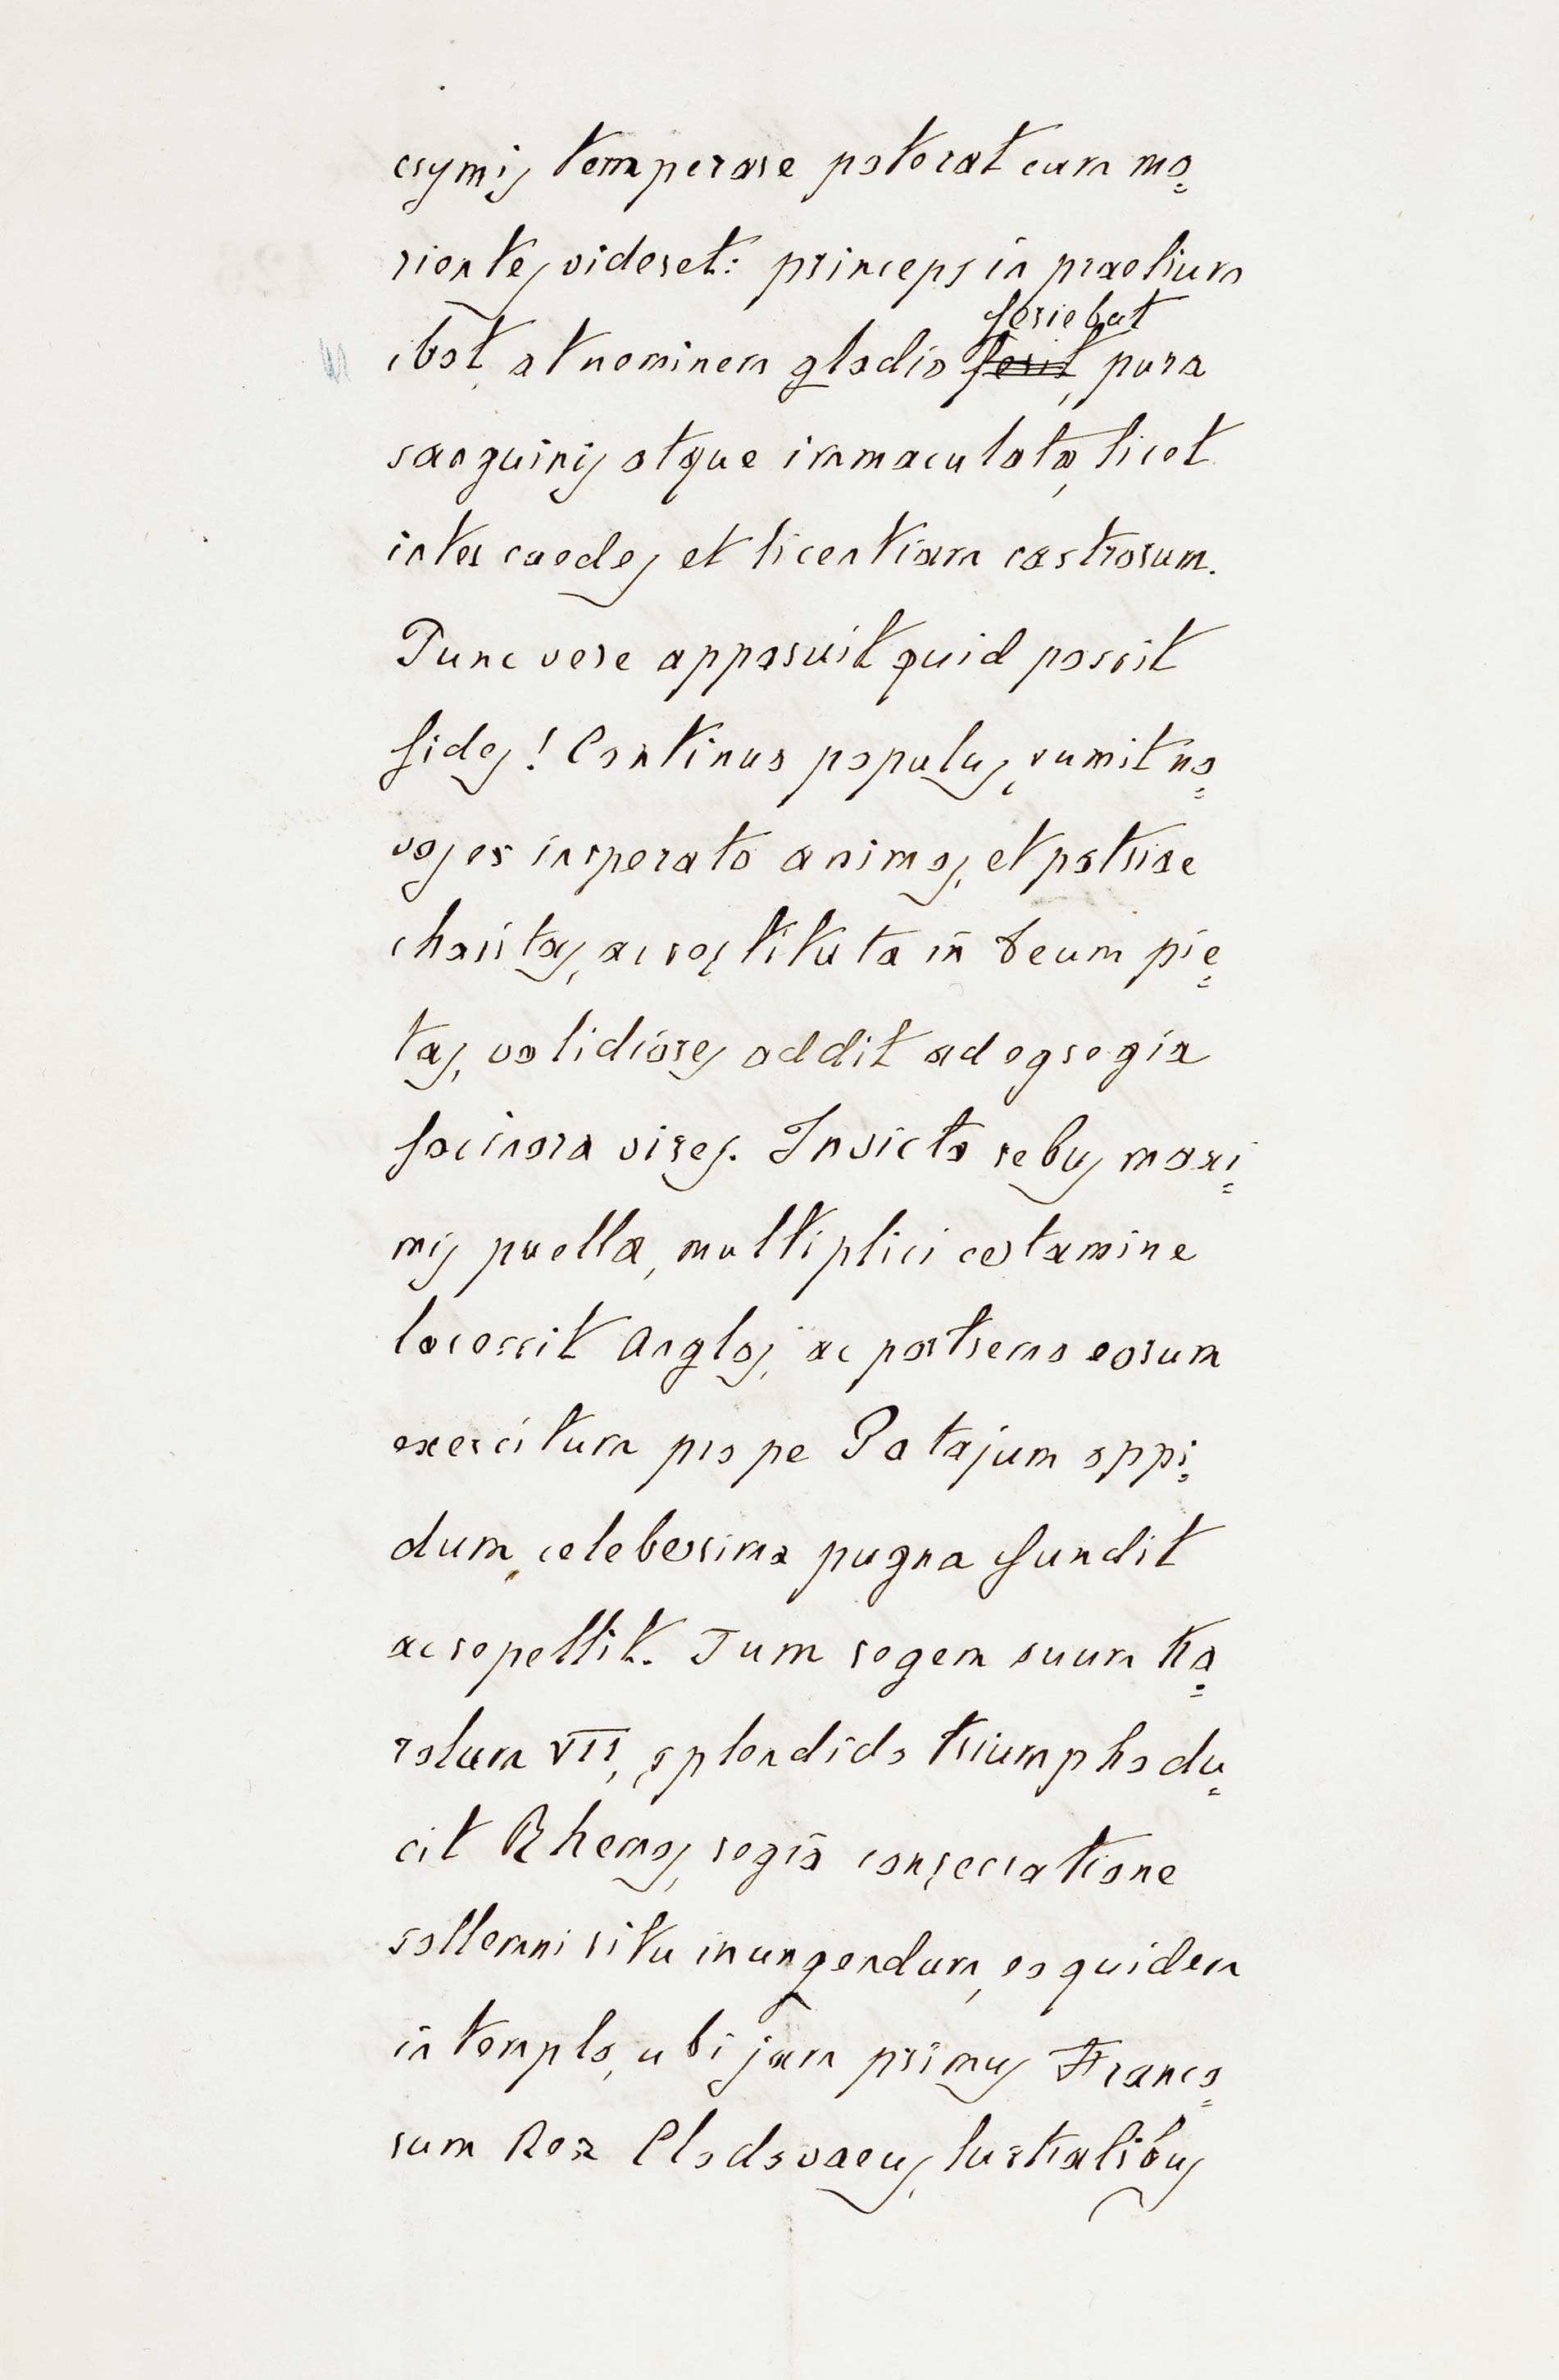 crymis temperare poterat cum mo=
rientes videret: princeps in praelium
feriebat
ibat, at neminem gladio ferit, pura
sanguinis atque immaculata, licet
inter caedes et licentiam castrorum.
Tunc vere apparuit quid possit
fides! Continuo populus, sumit no=
vos ex insperato animos, et patriae
charitas, ac restituta in Deum pie=
tas, validiores addit ad egregia
facinora vires. Invicta rebus maxi=
mis puella, multiplici certamine
lacessit Anglos, ac postremo eorum
exercitum prope Patajum oppi=
dum, celeberrima pugna fundit
ac repellit. Tum regem suum Ka=
rolum VII, splendido triumpho du=
cit Rhemos, regia consecratione
sollemni ritu inungendum, eo quidem
in templo, ubi jam primus Franco=
rum Rex Clodovaeus, lustralibus